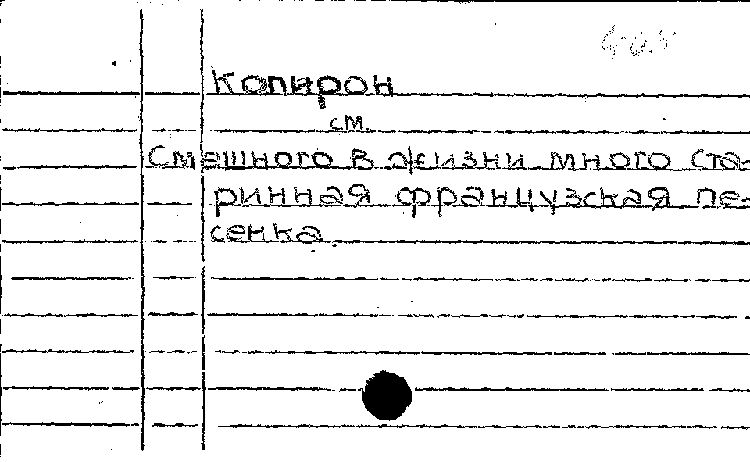 Копирон
см.
Смешного в жизни много ста-
ринная французская пе-
сенка.